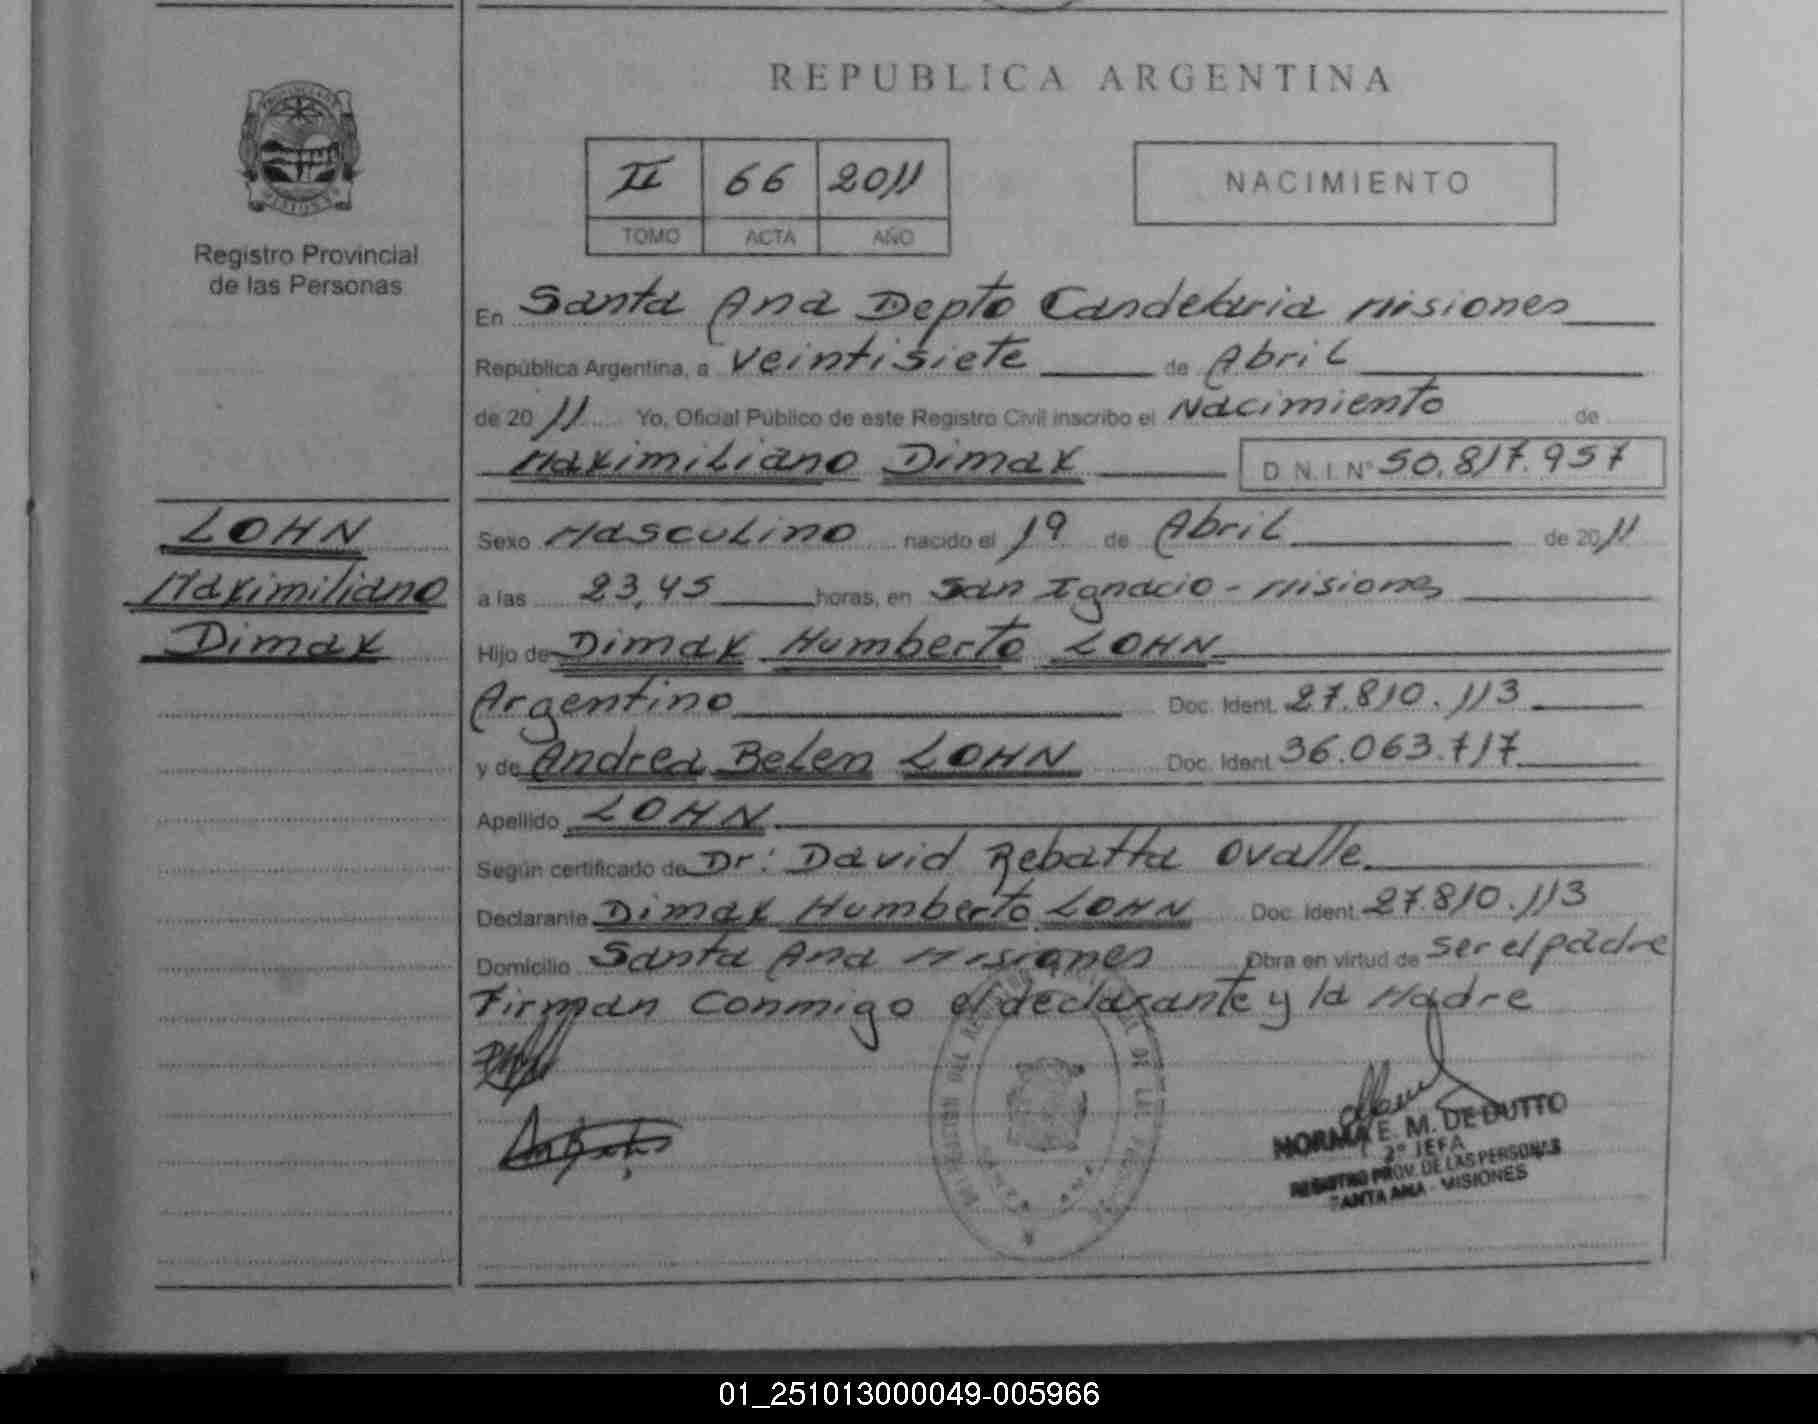 REPUBLICA ARGENTINA
II 66 2011
TOMO ACTA AÑO
NACIMIENTO
Registro Provincial
de las Personas
En Santa Ana Depto Candelaria Misiones
República Argentina, a veintisiete de Abril
de 2011 Yo, Oficial Público de este Registro Civil inscribo el Nacimiento de
Maximiliano Dimax D.N.I. Nº 50.817.957
LOHN
Maximiliano
Dimax
Sexo Masculino nacido el 19 de Abril de 2011
a las 23,45 horas, en San Ignacio - Misiones
Hijo de Dimax Humberto LOHN
Argentino Doc. Ident. 27.810.113
y de Andrea Belen LOHN Doc. Ident. 36.063.717
Apellido LOHN
Según certificado de Dr: David Rebatta Ovalle
Declarante Dimax Humberto LOHN Doc. Ident. 27.810.113
Domicilio Santa Ana Misiones Obra en virtud de ser el padre
Firman Conmigo el declarante y la Madre
NORMA E. M. DE DUTTO
2º JEFA
REGISTRO PROV. DE LAS PERSONAS
SANTA ANA - MISIONES
01_251013000049-005966